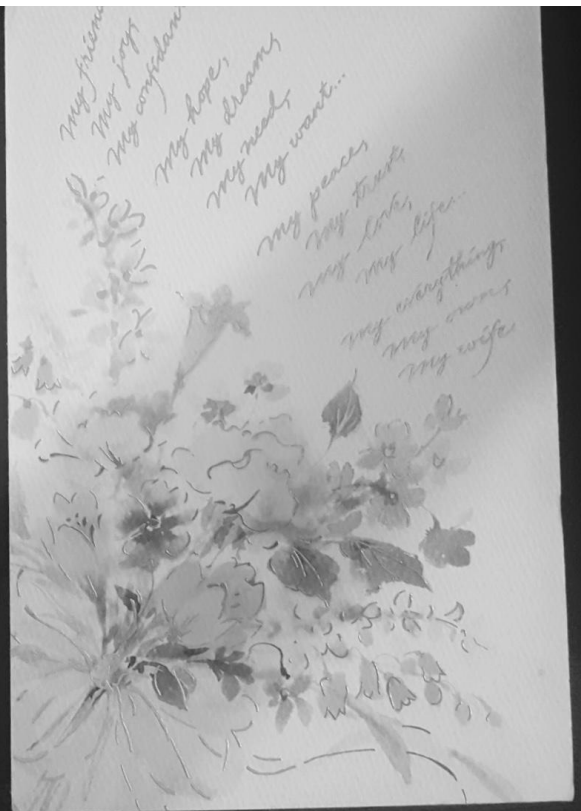 my friend
my joy,
my confidan
my hope,
my dream,
my need,
my want...
my peace,
my trust,
my love,
my life...
my everything,
my own,
my wife